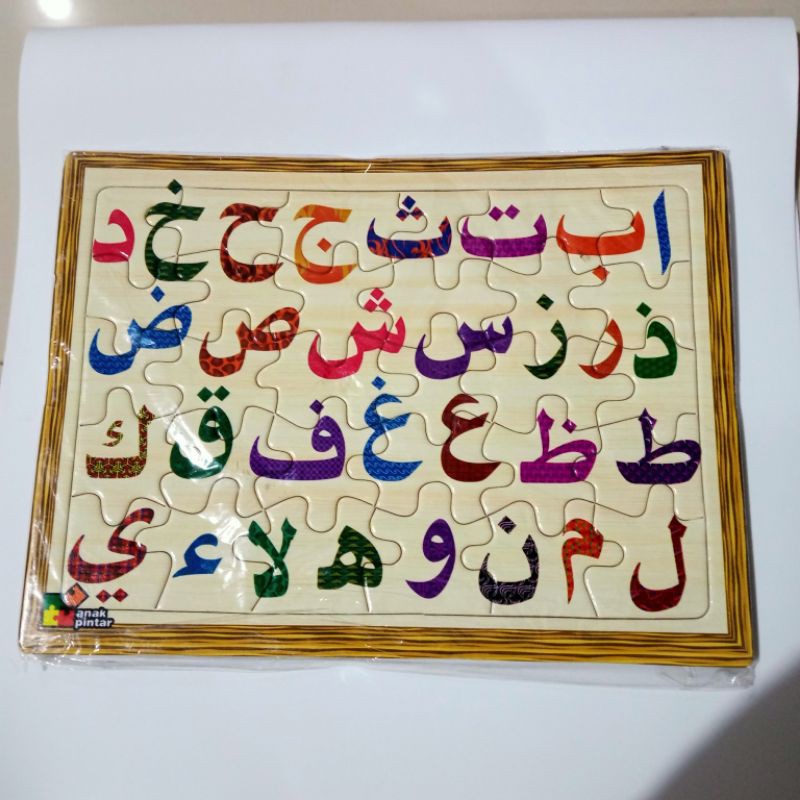 ا ب ت ث ج ح خ د
ذ ر ز س ش ص ض
ط ظ ع غ ف ق ك
ل م ن و ه لا ء ي
anak
pintar